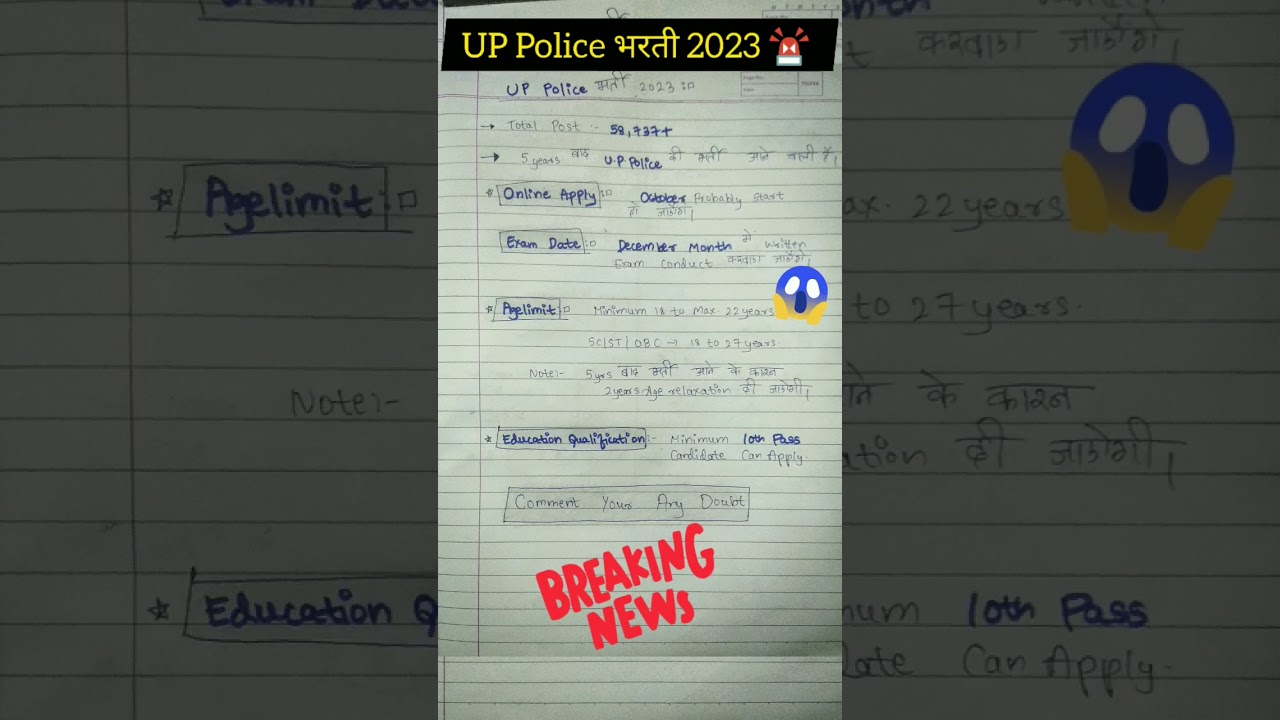 UP Police भरती 2023
UP Police भर्ती 2023 :-
→ Total Post :- 58,737+
→ 5 years बाद U.P Police की भर्ती आने वाली है।
* Online Apply :- October Probably Start
हो जाऐगा।
Exam Date :- December Month में Written
Exam Conduct करवाऐ जाऐंगे।
* Agelimit :- Minimum 18 to Max. 22 years
SC/ST/OBC → 18 to 27 years.
Note:- 5yrs बाद भर्ती आने के कारन
2years Age relaxation दी जाऐगी।
* Education Qualification :- Minimum 10th Pass
Candidate Can Apply.
Comment Your Any Doubt
BREAKING
NEWS
Month
करवाऐ जाऐंगे।
* Agelimit :-
ax. 22 years
to 27 years.
Note:-
के कारन
ation दी जाऐगी।
* Education Q
mum 10th Pass
date Can Apply.